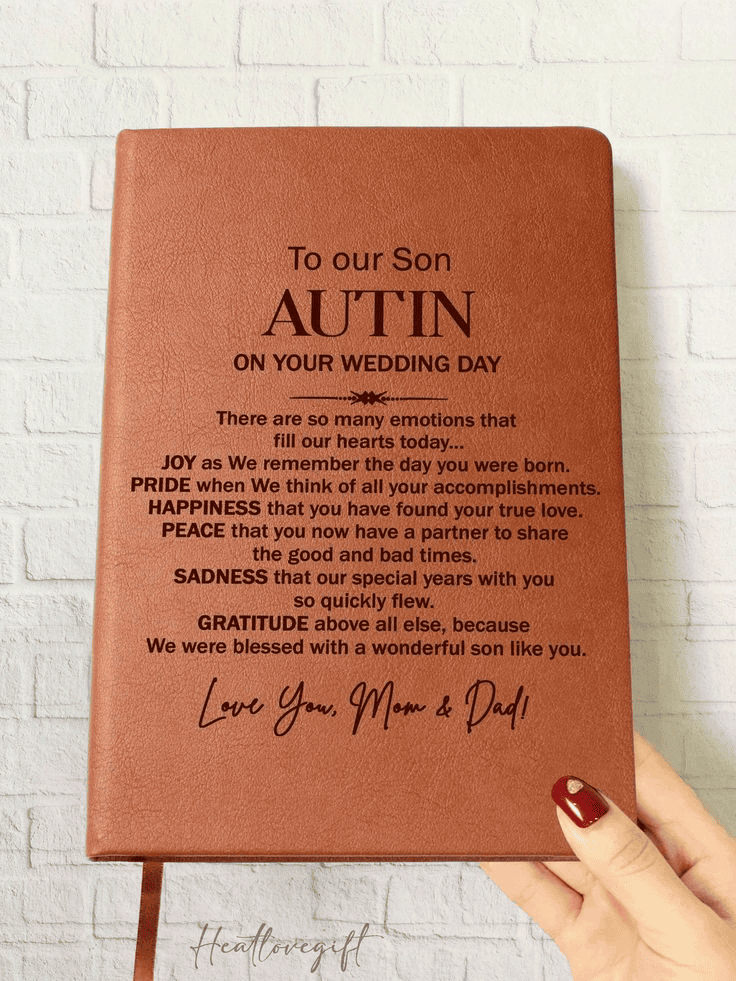 To our Son
AUTIN
ON YOUR WEDDING DAY
There are so many emotions that
fill our hearts today...
JOY as We remember the day you were born.
PRIDE when We think of all your accomplishments.
HAPPINESS that you have found your true love.
PEACE that you now have a partner to share
the good and bad times.
SADNESS that our special years with you
so quickly flew.
GRATITUDE above all else, because
We were blessed with a wonderful son like you.
Love You, Mom & Dad!
Heatlovegift